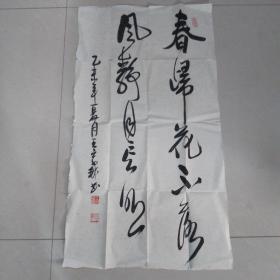 春歸花不落
風靜月長明
乙未年夏月王